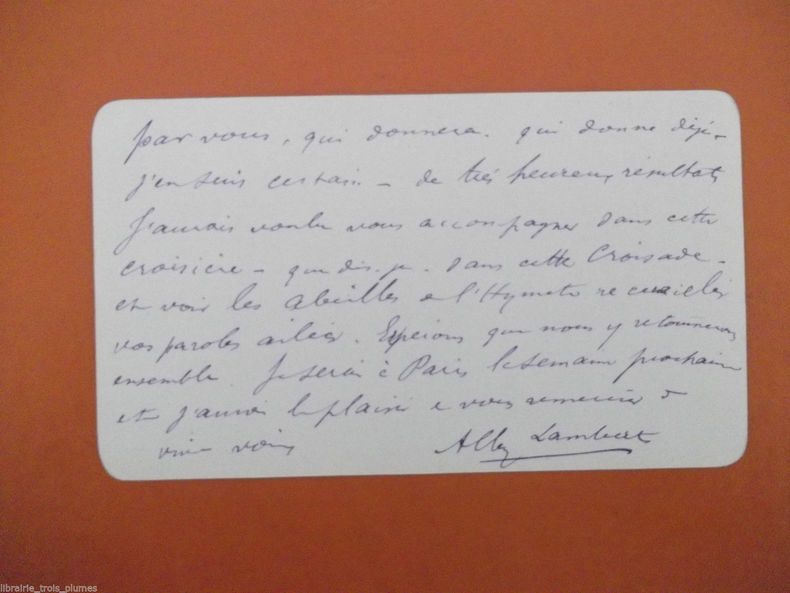 par vous, qui donnera - qui donne déjà -
j'en suis certain - de très heureux résultats
J'aurais voulu vous accompagner dans cette
croisière - que dis-je - dans cette Croisade -
et voir les abeilles de l'Hymette recueillir
vos paroles ailées. Espérons que nous y retournerons
ensemble. Je serai à Paris la semaine prochaine
et j'aurai le plaisir de vous remercier de
vive voix
Lambert
librairie_trois_plumes